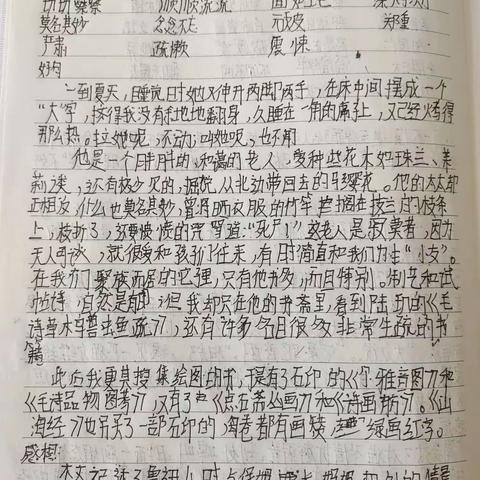 切切察察 顺顺流流 面如土色
莫名其妙 念念不忘 元坡 郑重
严肃 疏懒 震悚
好句
一到夏天，睡觉时她又伸开两脚两手，在床中间摆成一个
“大”字，挤得我没有余地翻身，久睡在一角的席子上，又已经烤得
那么热。拉她呢，不动；叫她呢，也不闻
他是一个胖胖的，和蔼的老人，爱种些花木如珠兰、茉
莉类，还有极少见的，据说从北边带回去的马缨花。他的太太却
正相反，什么也莫名其妙，曾将晒衣服的竹竿搁在枝兰的枝条
上，枝折了，还要愤愤的咒骂道：“死尸！”这老人是寂寞者，因为
无人可谈，就很爱和孩们往来，有时简直和我们为生“小友”。
在我们聚族而居的宅里，只有他书多，而且特别。制艺和试
帖诗，自然是有的；但我却只在他的书斋里，看到陆玑的《毛
诗草木鸟兽虫鱼疏》，还有许多名目很多非常生疏的书
籍
此后我更其搜集绘图的书，于是有了石印的《尔雅音图》和
《毛诗品物图考》，又有了《点石斋丛画》和《诗画舫》。《山
海经》也另买了一部石印的，每卷都有画赞，绿画红字。
感想：